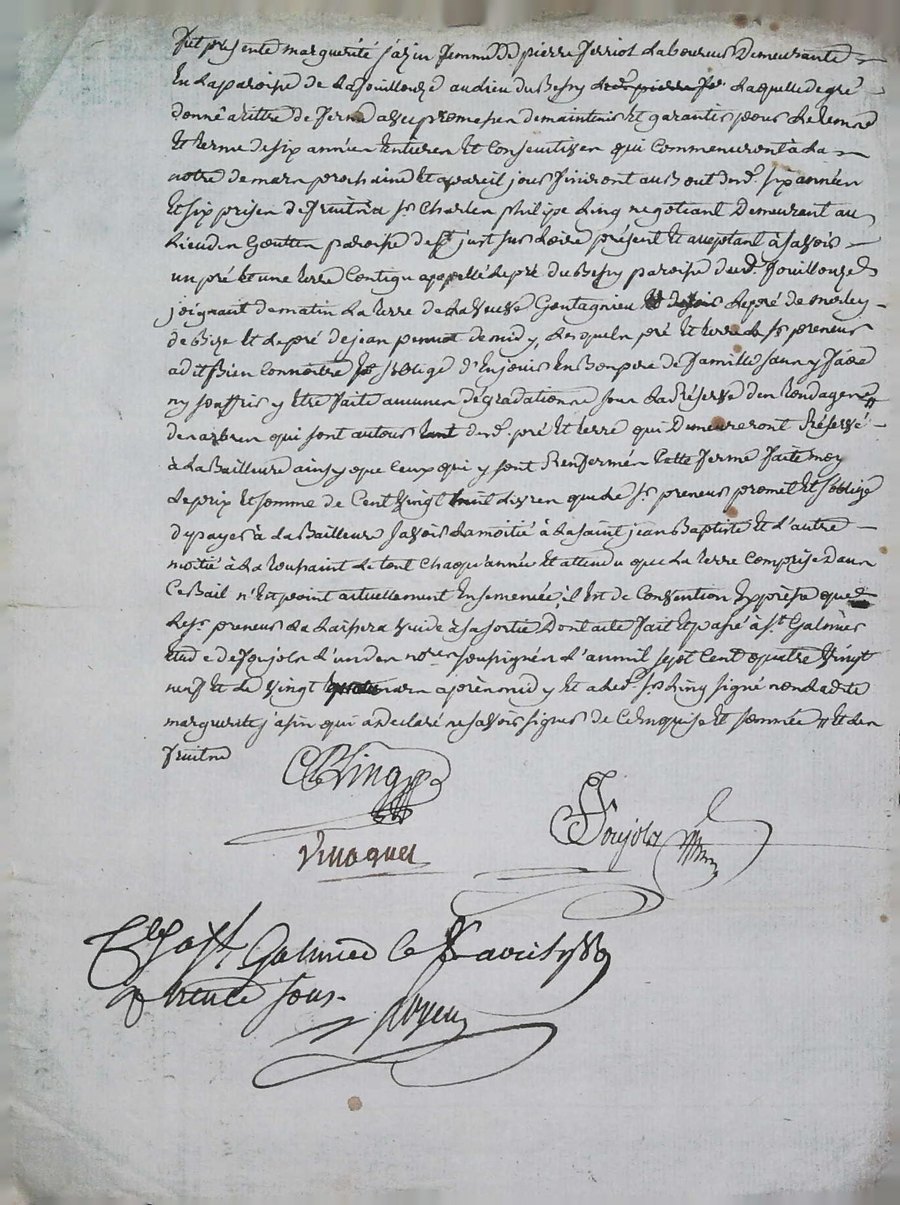 fut presente marguerite jazin femme de pierre ferriol Laboureur Demeurante
En La paroisse de La fouillouze au Lieu du Besny Laquelle de gré
donne a tittre de ferme avec promesse de maintenir Et garantir pour Le temps
Et terme de six années Entieres Et Consecutives qui Commenceront à La
notre de mars prochaine Et a pareil jour finiront au Bout desd. six années
Et six prises de fruits a sr Charles philipe Ling negotiant Demeurant au
Lieu des Gouttes paroisse de st just sur Loire présent Et acceptant à savoir
un pré Et une terre Contigu appellé Le pré du Besny paroisse dud. fouillouze
joignant de matin La terre de La veuve Gontagnieu Le pré de morley
de Bize Et Le pré de jean de midy, Lesquels pré Et terre Le sr preneur
a dit Bien Connoitre s'oblige d'En jouir En Bon pere de famille sans y faire
ny souffrir y Etre faite aucunes dégradations sous La Réserve des Rondages #
des arbres qui sont autour desd. pré Et terre qui Demeureront Réservé
à La Bailleure ainsy que Ceux qui y sont Renfermés Cette ferme faite moy
Le prix Et somme de Cent vingt Livres que Le sr preneur promet Et s'oblige
d'y payer à La Bailleure savoir La moitié à La saint jean Baptiste Et L'autre
moitié à La toussaint Le tout Chaqu'année Et attendu que La terre Comprise Dans
Ce Bail n'Est point actuellement Ensemencée, il Est de Convention Expresse que
Le sr preneur La Laissera vuide à sa sortie Dont acte fait Et passé à st Galmier
Etude de foujols L'un des nores soussignés L'an mil sept Cent quatre vingt
neuf Et Le vingt mars après midy Et a Led. sr Ling signé non Ladite
marguerite jasin qui a Declaré ne savoir signer de Ce Enquise Et sommée # Et des
fruits
C P Ling
foujols
Vinoquet
Clé a st. Galmier le avril 1789
trente sous